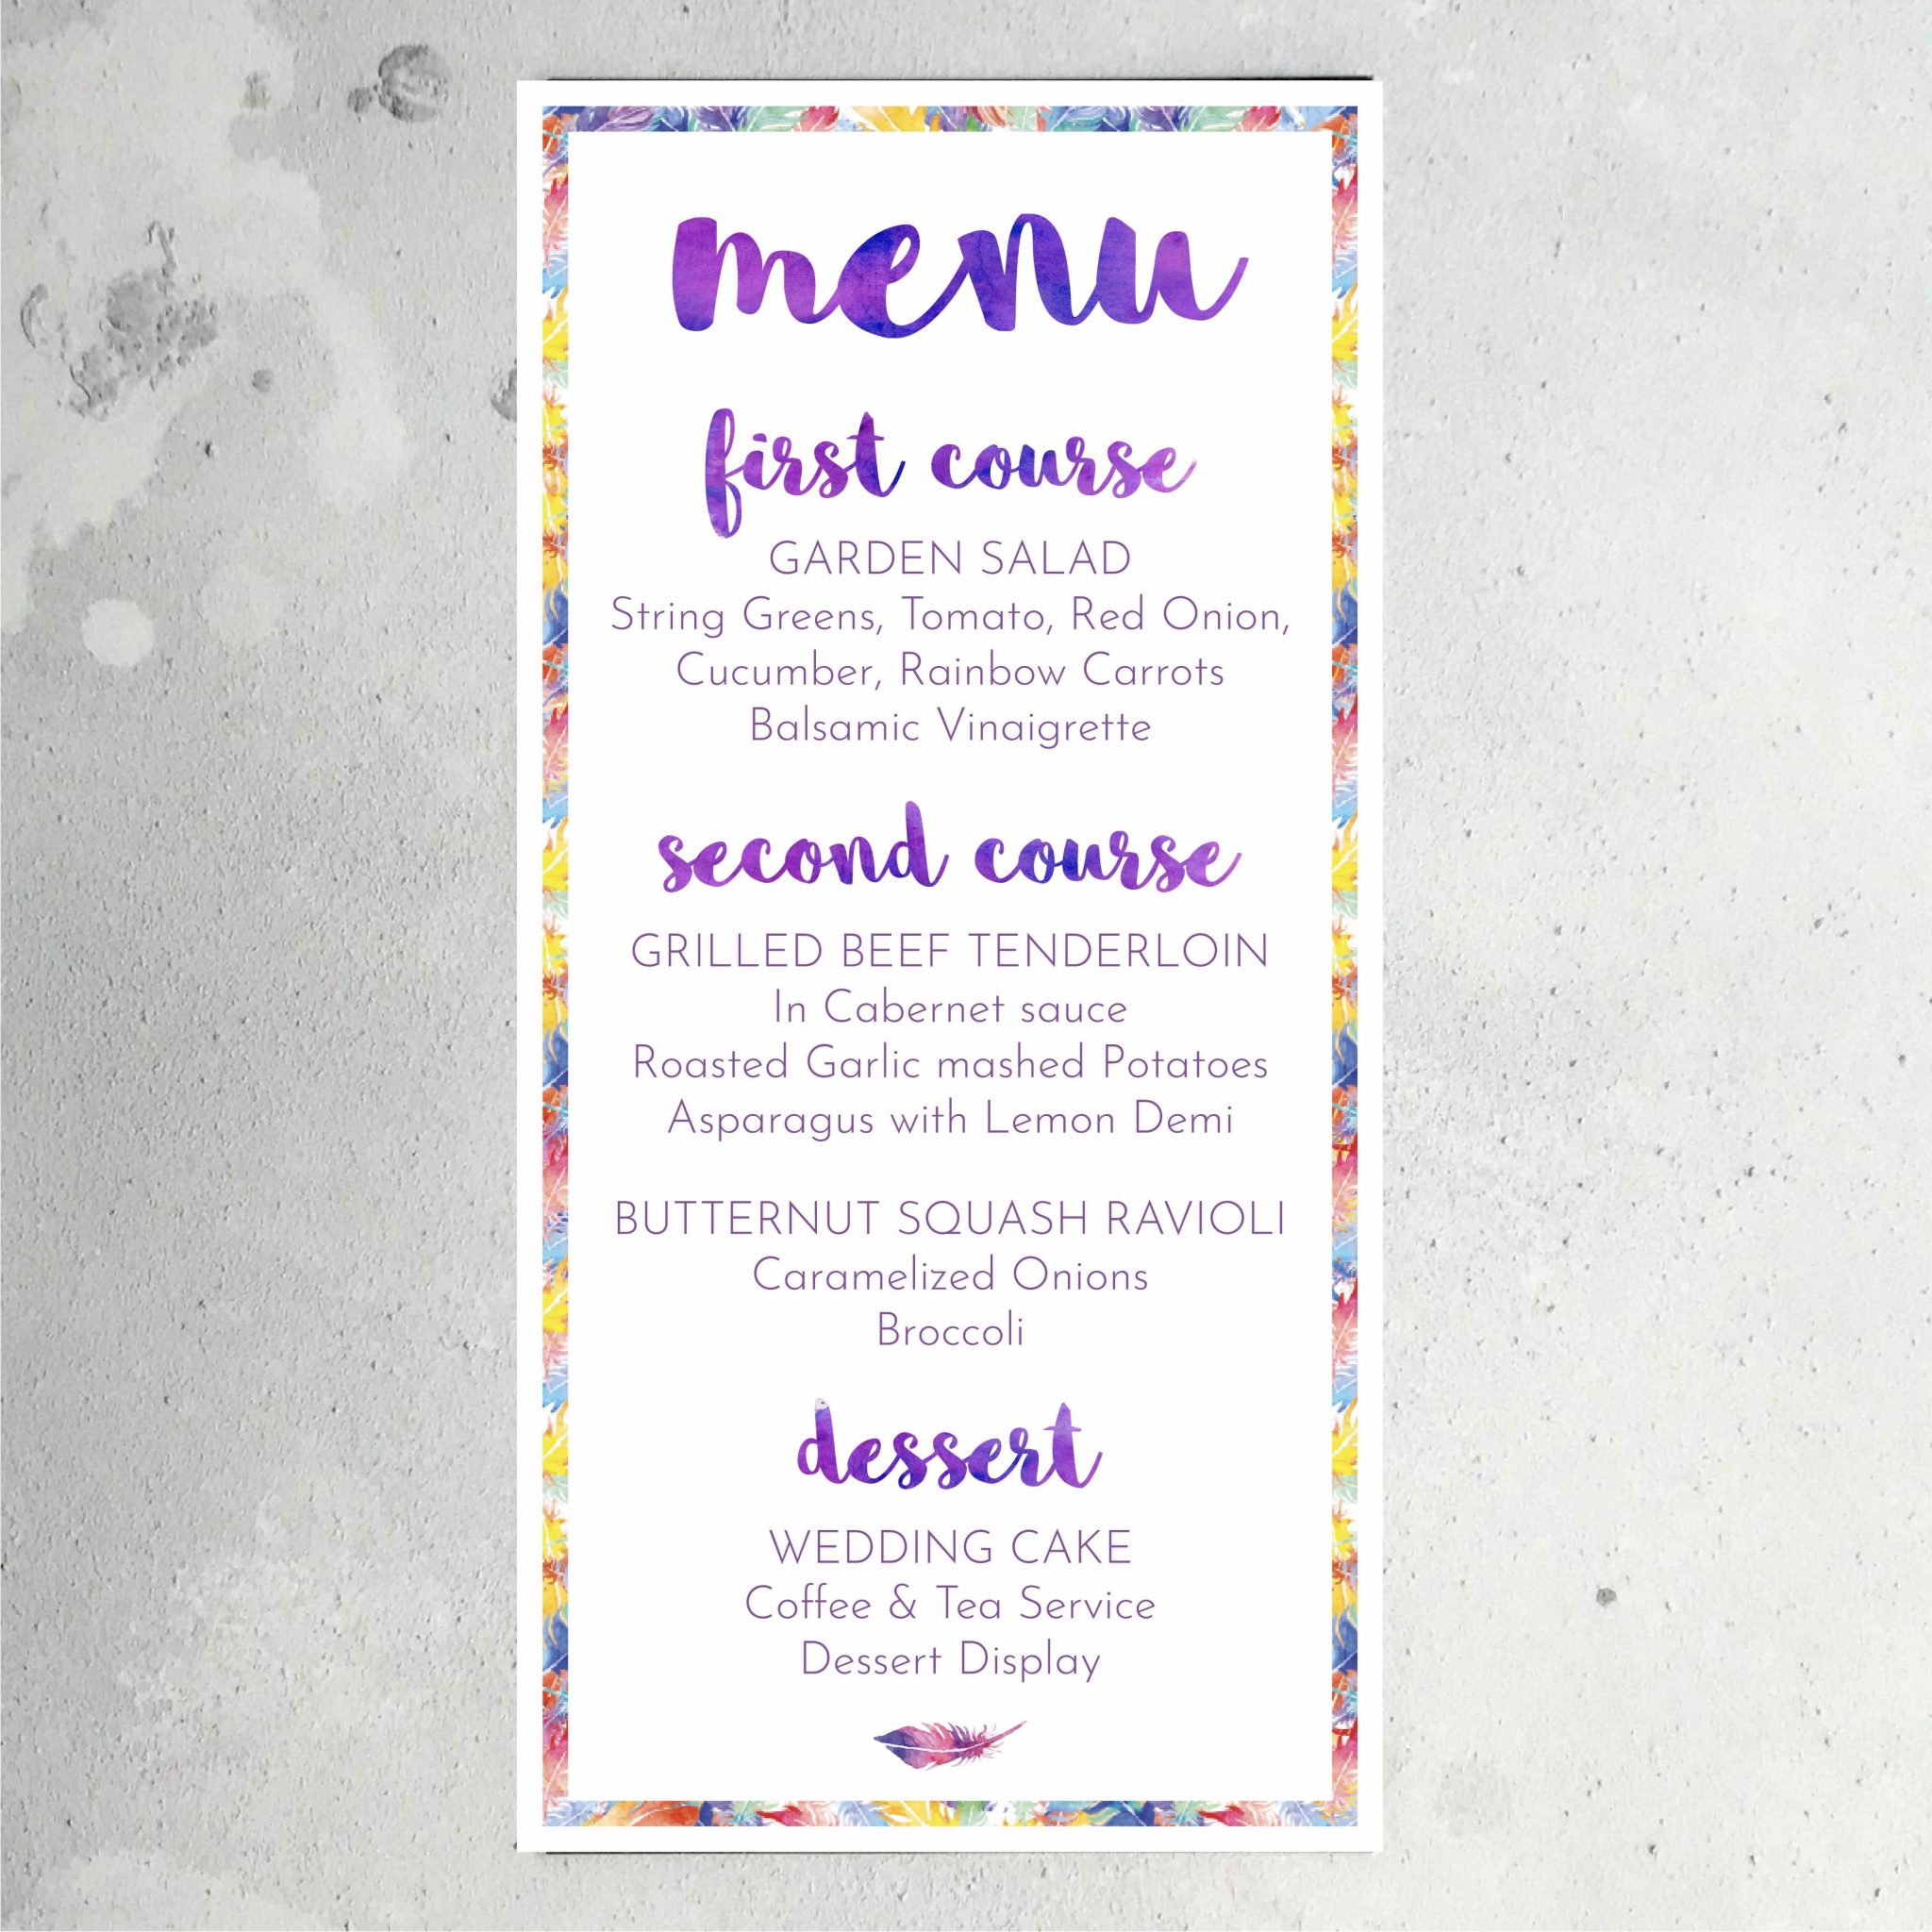 menu
first course
GARDEN SALAD
String Greens, Tomato, Red Onion,
Cucumber, Rainbow Carrots
Balsamic Vinaigrette
second course
GRILLED BEEF TENDERLOIN
In Cabernet sauce
Roasted Garlic mashed Potatoes
Asparagus with Lemon Demi
BUTTERNUT SQUASH RAVIOLI
Caramelized Onions
Broccoli
dessert
WEDDING CAKE
Coffee & Tea Service
Dessert Display